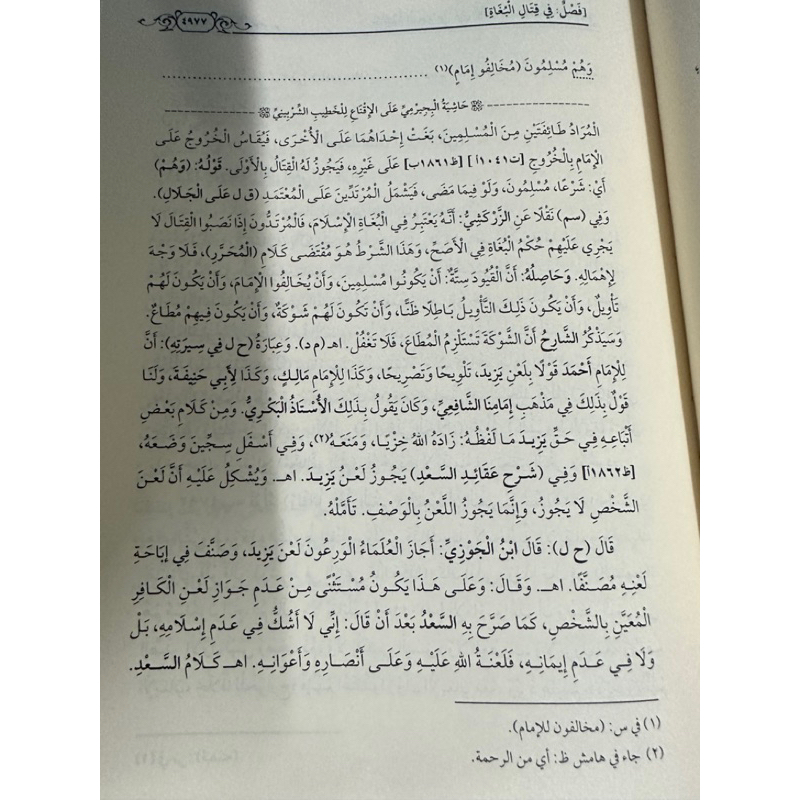 [فَصْلٌ: فِي قِتَالِ الْبُغَاةِ]
٤٩٧٧
وَهُمْ مُسْلِمُونَ (مُخَالِفُو إِمَامٍ)(١) ................................................
حَاشِيَةُ الْبُجَيْرِمِيِّ عَلَى الْإِقْنَاعِ لِلْخَطِيبِ الشِّرْبِينِيِّ
الْمُرَادُ طَائِفَتَيْنِ مِنَ الْمُسْلِمِينَ، بَغَتْ إِحْدَاهُمَا عَلَى الْأُخْرَى، فَيُقَاسُ الْخُرُوجُ عَلَى
الْإِمَامِ بِالْخُرُوجِ [ت١٠٤١أ] [ظ١٨٦١ب] عَلَى غَيْرِهِ، فَيَجُوزُ لَهُ الْقِتَالُ بِالْأَوْلَى. قَوْلُهُ: (وَهُمْ)
أَيْ: شَرْعًا، مُسْلِمُونَ، وَلَوْ فِيمَا مَضَى، فَيَشْمَلُ الْمُرْتَدِّينَ عَلَى الْمُعْتَمَدِ (ق ل عَلَى الْجَلَالِ).
وَفِي (سم) نَقْلًا عَنِ الزَّرْكَشِيِّ: أَنَّهُ يُعْتَبَرُ فِي الْبُغَاةِ الْإِسْلَامُ، فَالْمُرْتَدُّونَ إِذَا نَصَبُوا الْقِتَالَ لَا
يَجْرِي عَلَيْهِمْ حُكْمُ الْبُغَاةِ فِي الْأَصَحِّ، وَهَذَا الشَّرْطُ هُوَ مُقْتَضَى كَلَامِ (الْمُحَرَّرِ)، فَلَا وَجْهَ
لِإِهْمَالِهِ. وَحَاصِلُهُ: أَنَّ الْقُيُودَ سِتَّةٌ: أَنْ يَكُونُوا مُسْلِمِينَ، وَأَنْ يُخَالِفُوا الْإِمَامَ، وَأَنْ يَكُونَ لَهُمْ
تَأْوِيلٌ، وَأَنْ يَكُونَ ذَلِكَ التَّأْوِيلُ بَاطِلًا ظَنًّا، وَأَنْ تَكُونَ لَهُمْ شَوْكَةٌ، وَأَنْ يَكُونَ فِيهِمْ مُطَاعٌ.
وَسَيَذْكُرُ الشَّارِحُ أَنَّ الشَّوْكَةَ تَسْتَلْزِمُ الْمُطَاعَ، فَلَا تَغْفُلْ. اهـ (م د). وَعِبَارَةُ (ح ل فِي سِيرَتِهِ): أَنَّ
لِلْإِمَامِ أَحْمَدَ قَوْلًا بِلَعْنِ يَزِيدَ، تَلْوِيحًا وَتَصْرِيحًا، وَكَذَا لِلْإِمَامِ مَالِكٍ، وَكَذَا لِأَبِي حَنِيفَةَ، وَلَنَا
قَوْلٌ بِذَلِكَ فِي مَذْهَبِ إِمَامِنَا الشَّافِعِيِّ، وَكَانَ يَقُولُ بِذَلِكَ الْأُسْتَاذُ الْبَكْرِيُّ. وَمِنْ كَلَامِ بَعْضِ
أَتْبَاعِهِ فِي حَقِّ يَزِيدَ مَا لَفْظُهُ: زَادَهُ اللهُ خِزْيًا، وَمَنَعَهُ(٢)، وَفِي أَسْفَلِ سِجِّينَ وَضَعَهُ،
[ظ١٨٦٢أ] وَفِي (شَرْحِ عَقَائِدِ السَّعْدِ) يَجُوزُ لَعْنُ يَزِيدَ. اهـ. وَيُشْكِلُ عَلَيْهِ أَنَّ لَعْنَ
الشَّخْصِ لَا يَجُوزُ، وَإِنَّمَا يَجُوزُ اللَّعْنُ بِالْوَصْفِ. تَأَمَّلْهُ.
قَالَ (ح ل): قَالَ ابْنُ الْجَوْزِيِّ: أَجَازَ الْعُلَمَاءُ الْوَرِعُونَ لَعْنَ يَزِيدَ، وَصَنَّفَ فِي إِبَاحَةِ
لَعْنِهِ مُصَنَّفًا. اهـ. وَقَالَ: وَعَلَى هَذَا يَكُونُ مُسْتَثْنًى مِنْ عَدَمِ جَوَازِ لَعْنِ الْكَافِرِ
الْمُعَيَّنِ بِالشَّخْصِ، كَمَا صَرَّحَ بِهِ السَّعْدُ بَعْدَ أَنْ قَالَ: إِنِّي لَا أَشُكُّ فِي عَدَمِ إِسْلَامِهِ، بَلْ
وَلَا فِي عَدَمِ إِيمَانِهِ، فَلَعْنَةُ اللهِ عَلَيْهِ وَعَلَى أَنْصَارِهِ وَأَعْوَانِهِ. اهـ كَلَامُ السَّعْدِ.
(١) في س: (مخالفون للإمام).
(٢) جاء في هامش ظ: أي من الرحمة.